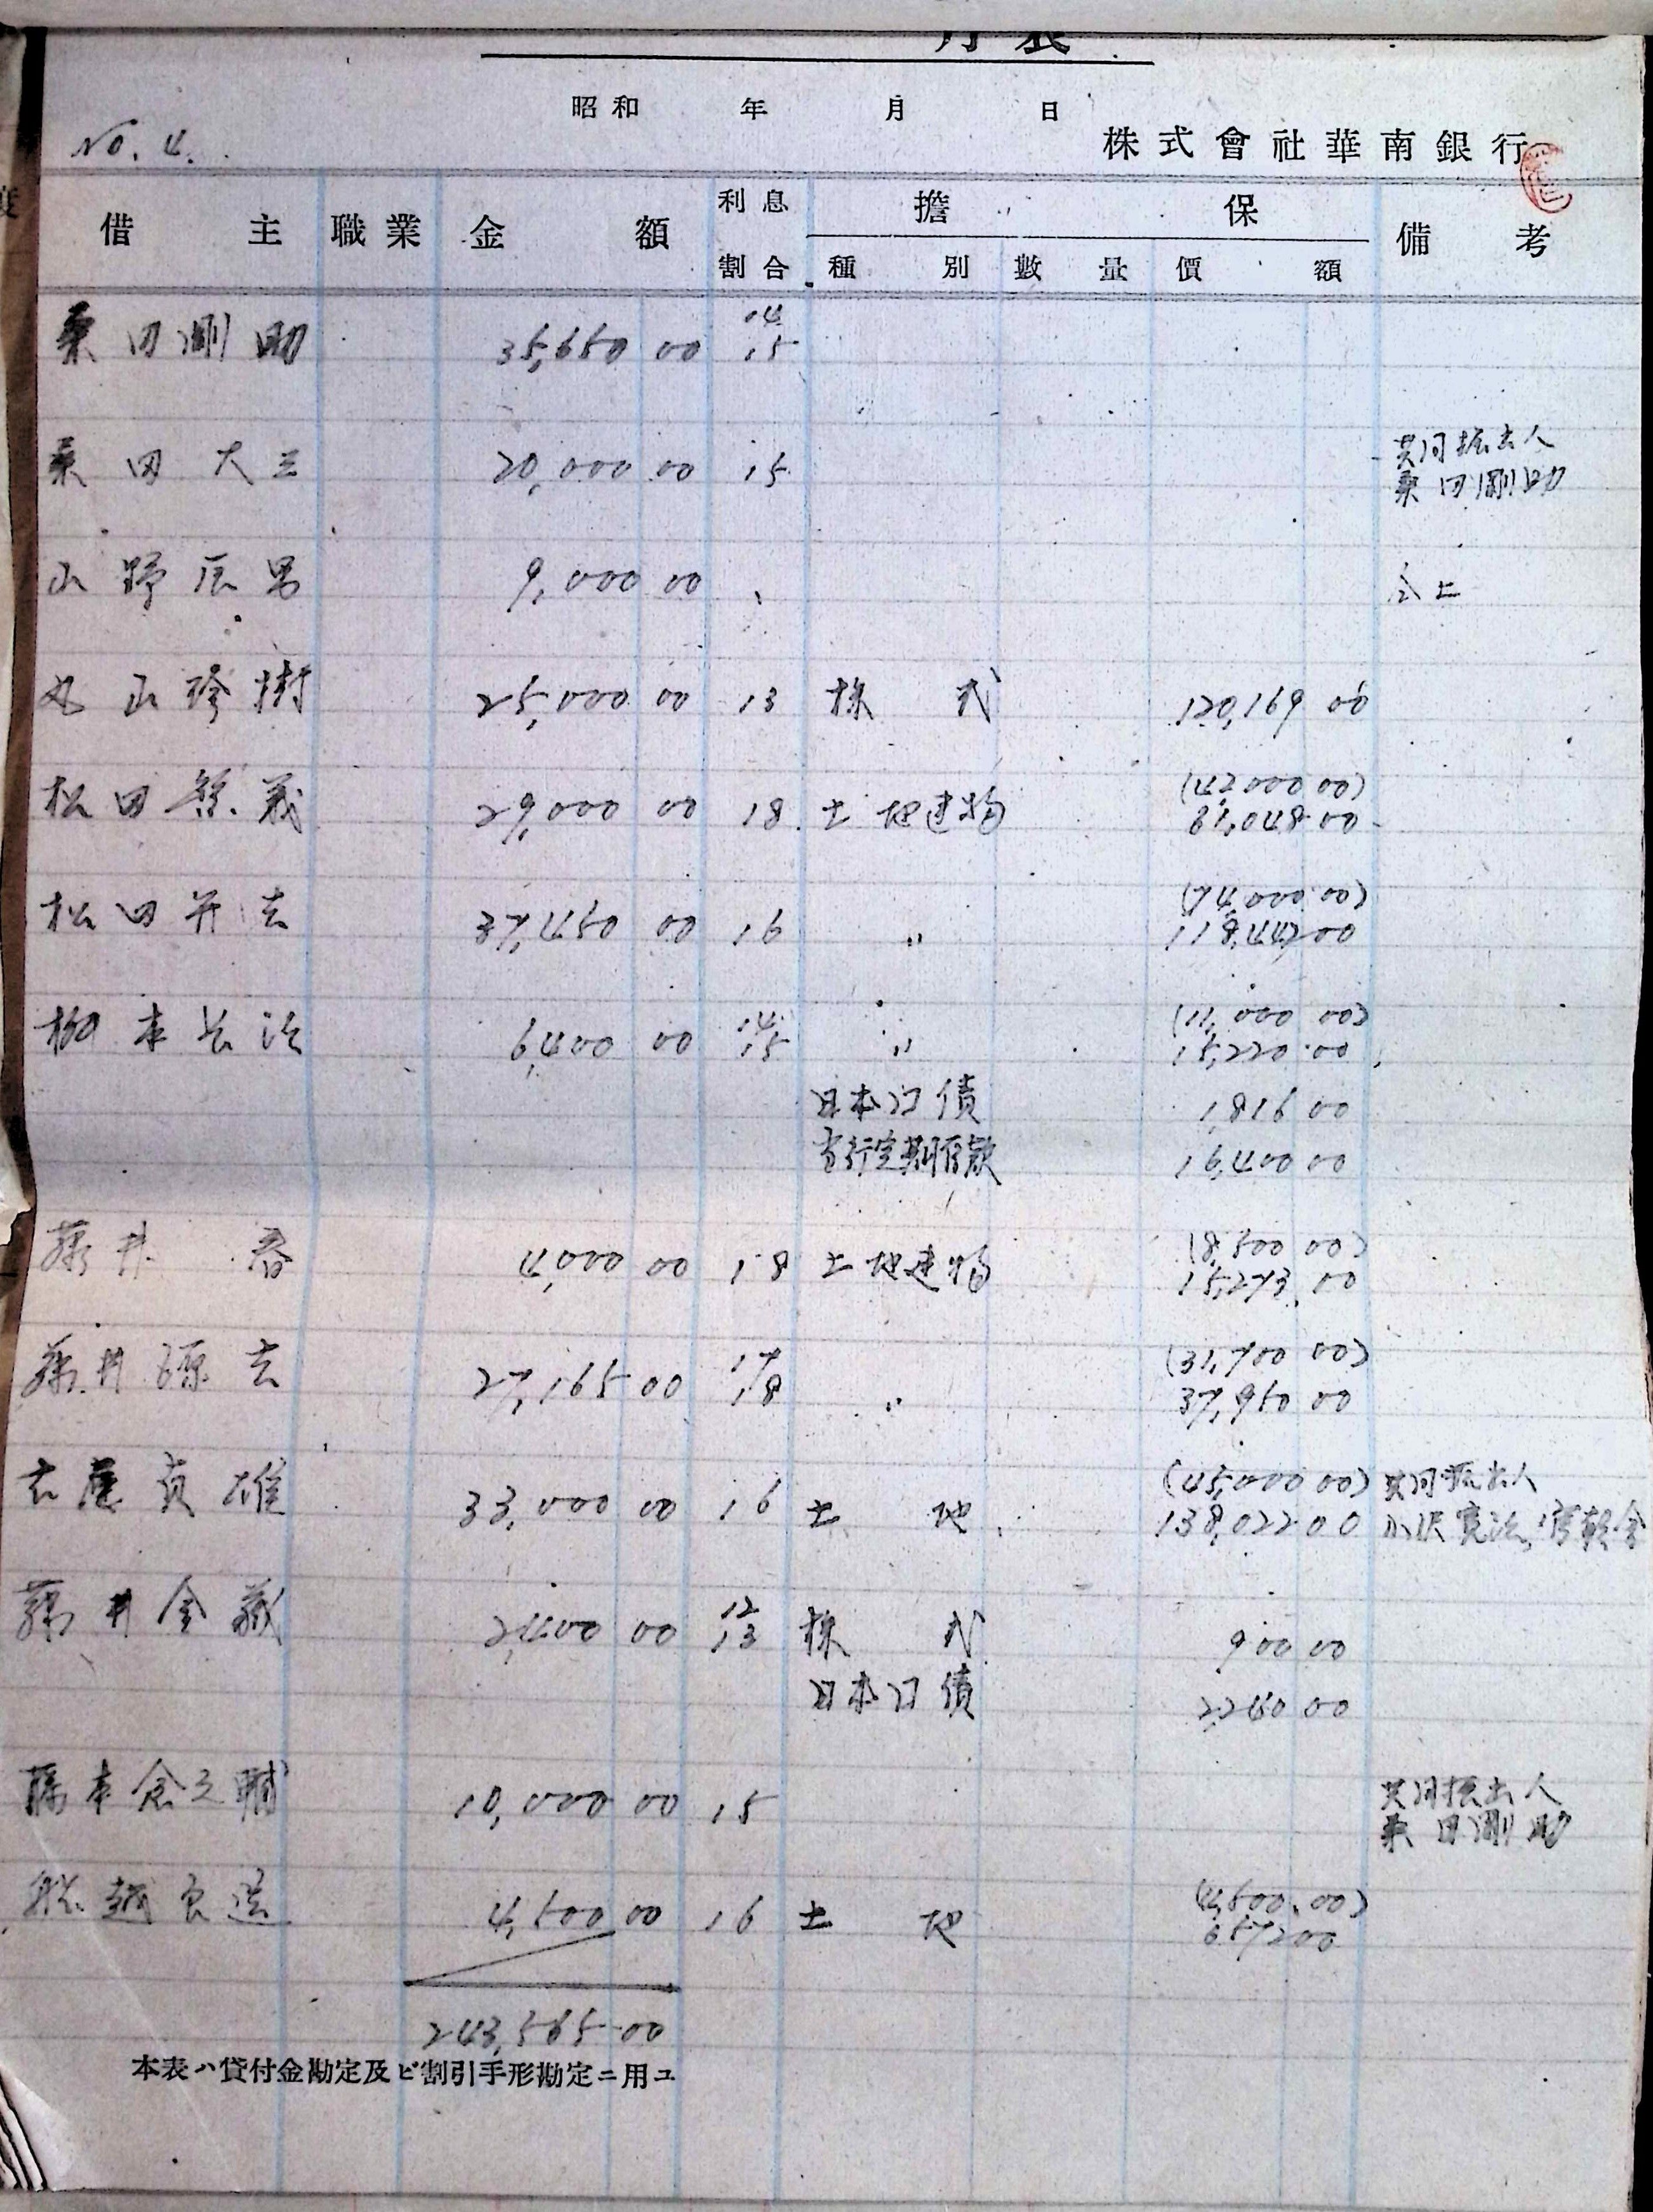 月表
昭和 年 月 日
No. 4.
株式會社華南銀行
借主 職業 金額 利息割合 擔保 備考
種別 數量 價額
桑田剛助 35,650 00 14
15
桑田大三 20,000 00 15 共同振出人
桑田剛助
山野辰男 9,000 00 〃 仝上
丸山珍樹 25,000 00 13 株式 120,169 00
松田 義 29,000 00 18 土地建物 (42,000 00)
81,048 00
松田弁吉 37,450 00 16 〃 (74,000 00)
118,442 00
柳本長治 6,400 00 14
15 〃 (11,000 00)
15,220 00
日本公債 1,816 00
當行定期存款 16,400 00
藤井 春 4,000 00 18 土地建物 (8,500 00)
15,273 00
藤井源吉 27,165 00 17
18 〃 (31,700 00)
37,950 00
吉尾貞雄 33,000 00 16 土地 (45,000 00) 共同振出人
138,022 00 小沢寛治
藤井金藏 2,400 00 12
13 株式 900 00
日本公債 2,240 00
藤本倉之輔 10,000 00 15 共同振出人
桑田剛助
船越良造 4,500 00 16 土地 (4,500 00)
6,572 00
243,565 00
本表ハ貸付金勘定及ビ割引手形勘定ニ用ユ